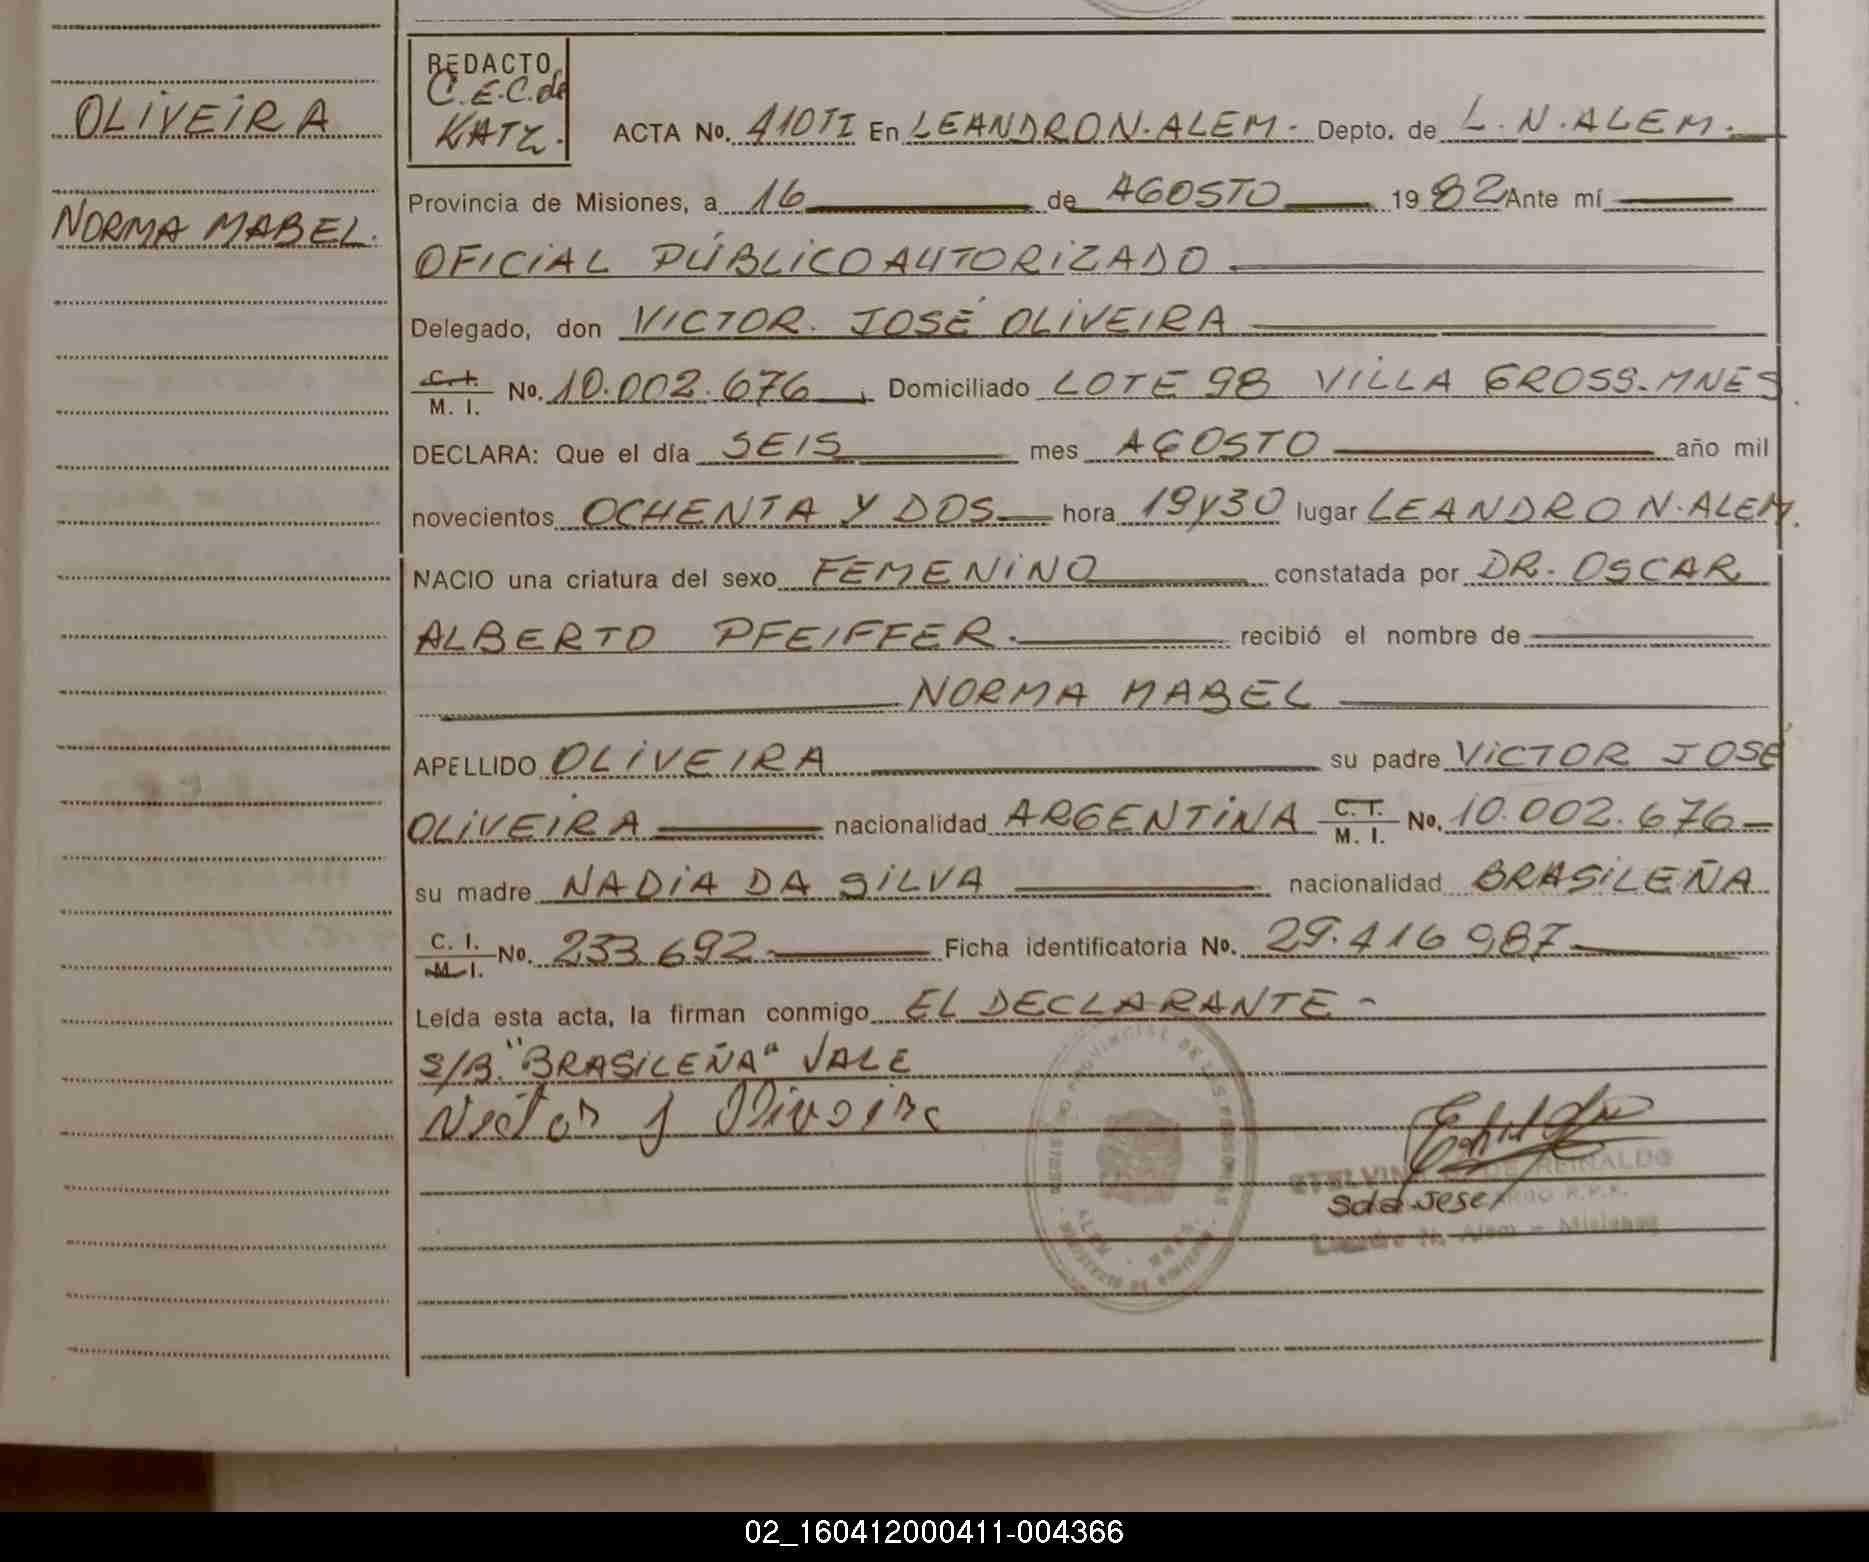 OLIVEIRA
NORMA MABEL.
REDACTO
C.E.C. de
KATZ.
ACTA No. 410TI En LEANDRO N. ALEM- Depto. de L. N. ALEM.
Provincia de Misiones, a 16 de AGOSTO 1982 Ante mí
OFICIAL PÚBLICO AUTORIZADO
Delegado, don VICTOR. JOSÉ OLIVEIRA
C. I. M. I. No. 10.002.676, Domiciliado LOTE 98 VILLA GROSS-MNES
DECLARA: Que el día SEIS mes AGOSTO año mil
novecientos OCHENTA Y DOS hora 19y30 lugar LEANDRO N. ALEM.
NACIO una criatura del sexo FEMENINO constatada por DR. OSCAR
ALBERTO PFEIFFER. recibió el nombre de
NORMA MABEL
APELLIDO OLIVEIRA su padre VICTOR JOSÉ
OLIVEIRA nacionalidad ARGENTINA C. I. M. I. No. 10.002.676
su madre NADIA DA SILVA nacionalidad BRASILEÑA
C. I. M. I. No. 233.692 Ficha identificatoria No. 29.416 987
Leída esta acta, la firman conmigo EL DECLARANTE-
S/B. "BRASILEÑA" VALE
Victor J Oliveira
REINALDO
R.P.P.
Leandro N. Alem - Misiones
02_160412000411-004366